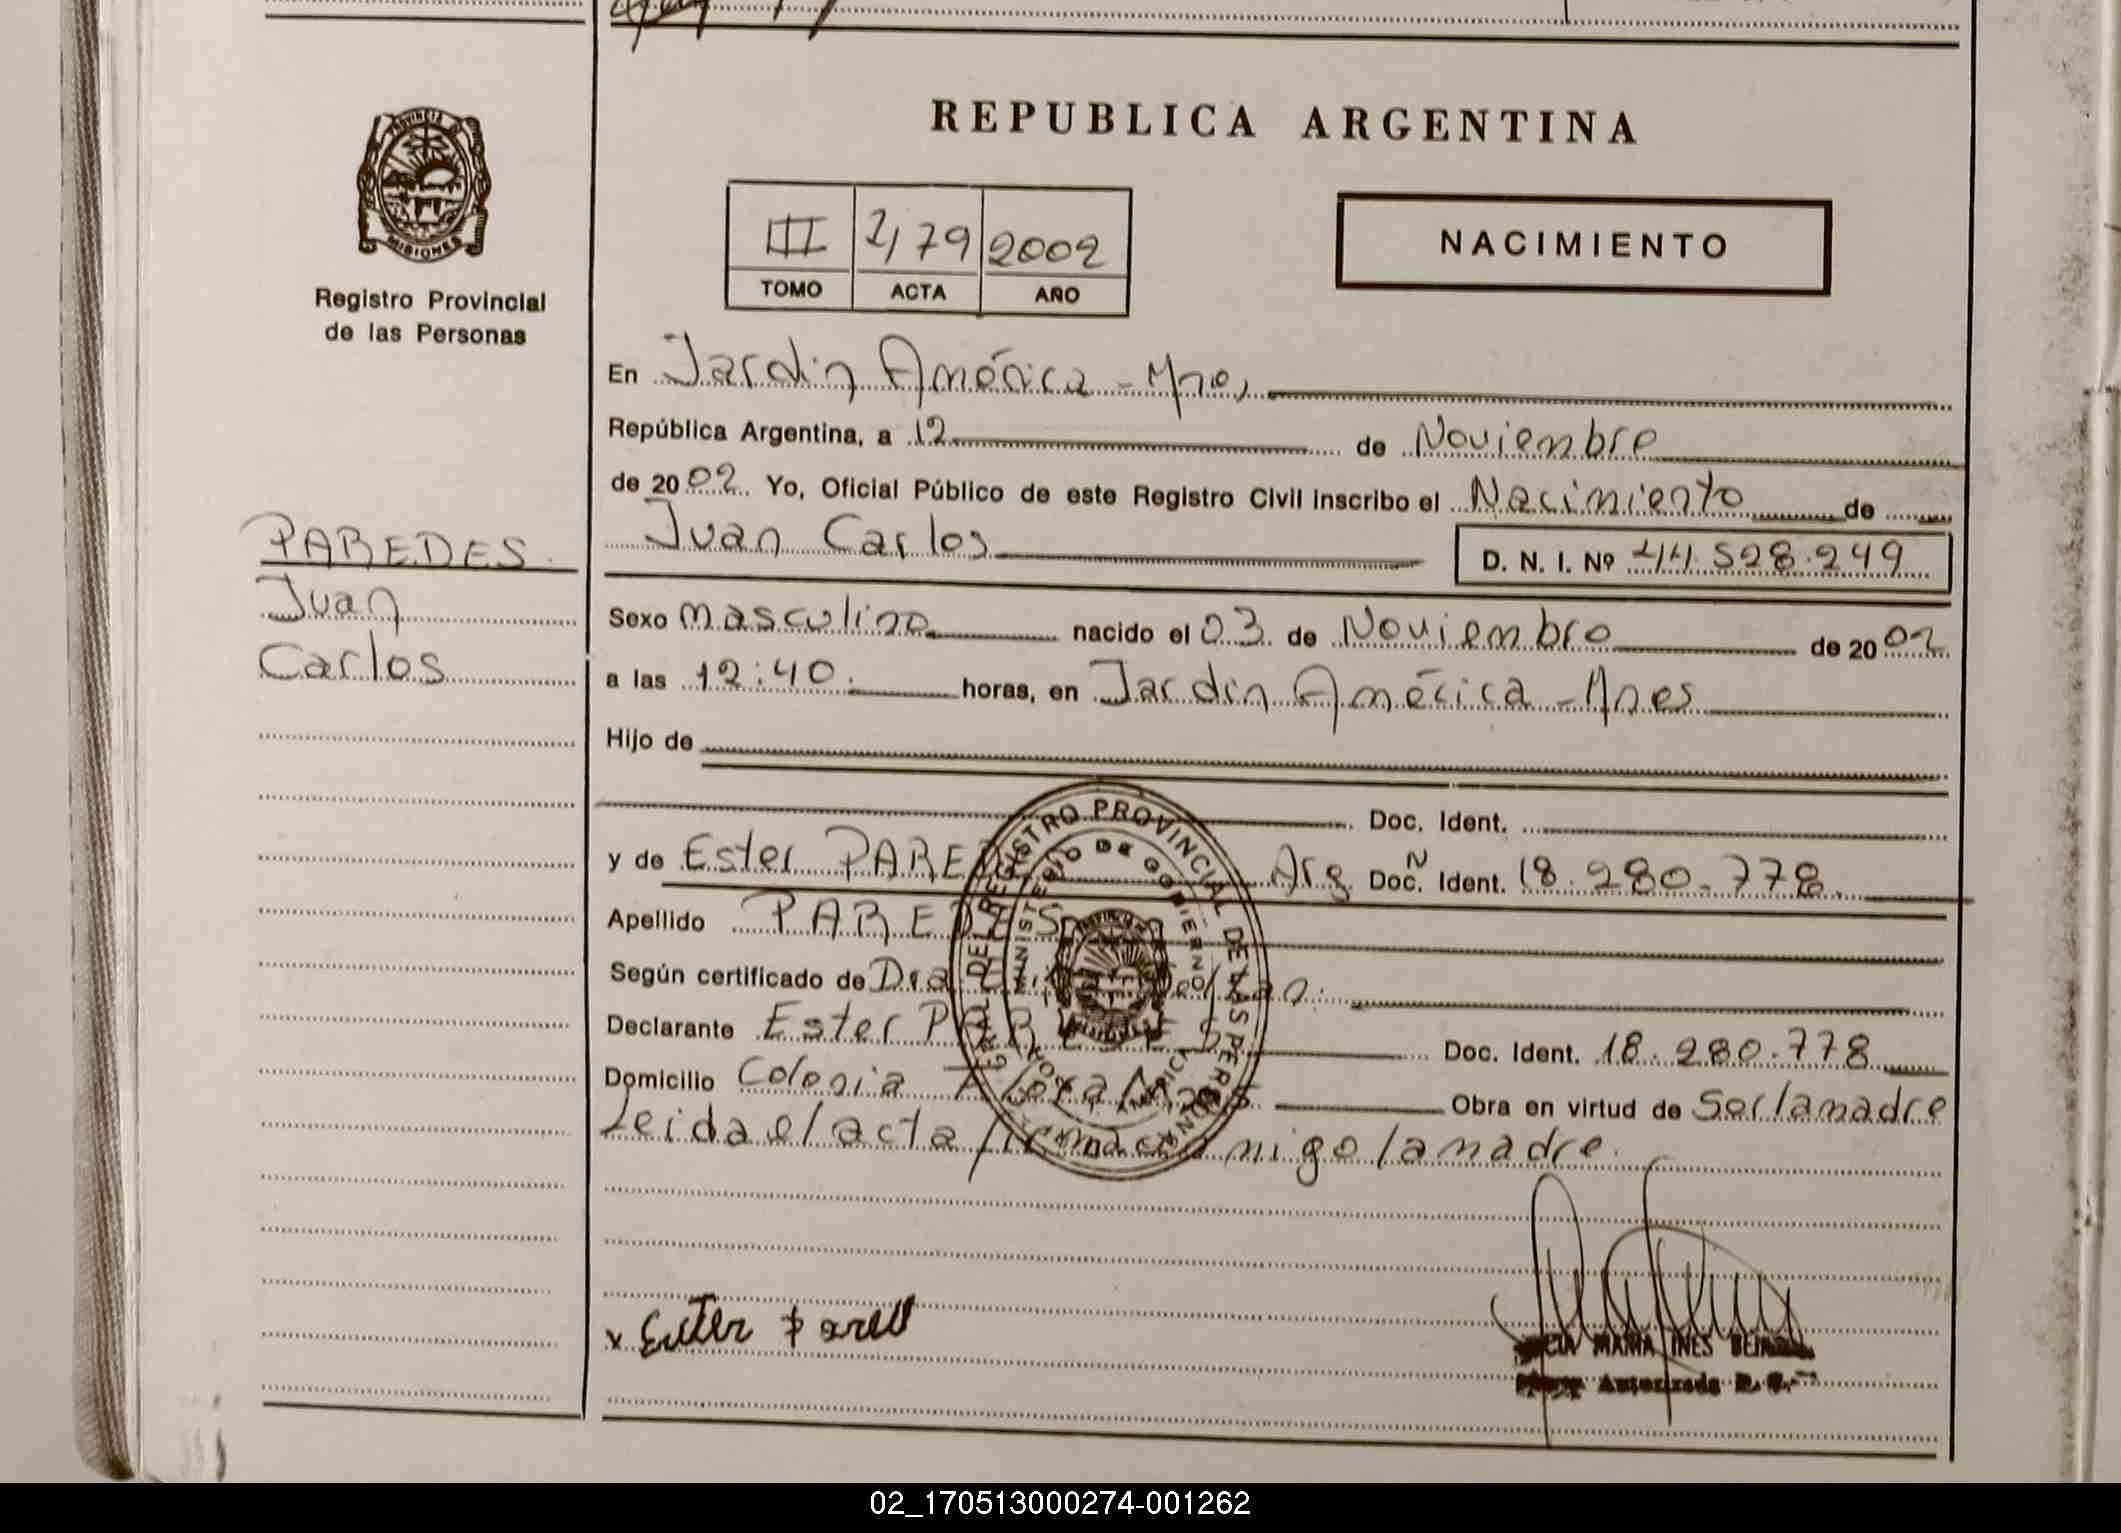 REPUBLICA ARGENTINA
PROVINCIA DE
MISIONES
Registro Provincial
de las Personas
III
2002
TOMO ACTA AÑO
NACIMIENTO
PAREDES
Juan
Carlos
En Jardin América - Mnes,
República Argentina, a 12 de Noviembre
de 2002. Yo, Oficial Público de este Registro Civil inscribo el Nacimiento de
Juan Carlos D. N. I. Nº 44.528.249
Sexo masculino nacido el 03 de Noviembre de 2002
a las 12:40. horas, en Jardin América - Mnes
Hijo de
Doc. Ident.
y de Ester PAREDES Arg. Doc. Ident. Nº 18.280.778.
Apellido PAREDES
Según certificado de Dra
Declarante Ester PAREDES Doc. Ident. 18.280.778
Domicilio Colonia Obra en virtud de Ser la madre
Leida el acta firma conmigo la madre.
REGISTRO PROVINCIAL DE LAS PERSONAS
MINISTERIO DE GOBIERNO
x Ester Pared
MARIA INES
Autorizada
02_170513000274-001262